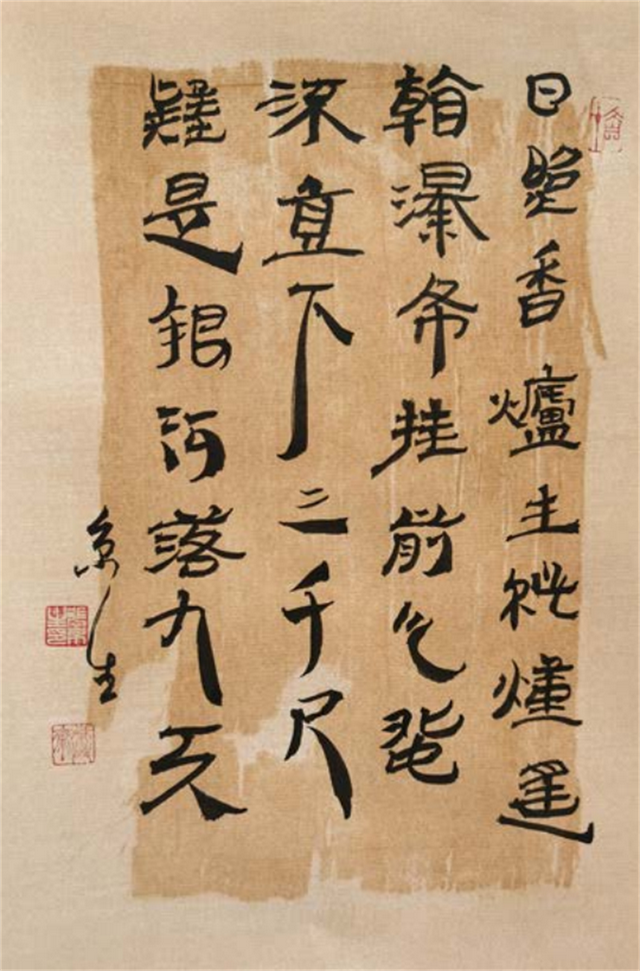 日照香爐生紫煙遙
看瀑布挂前川飛
流直下三千尺
疑是銀河落九天
京生